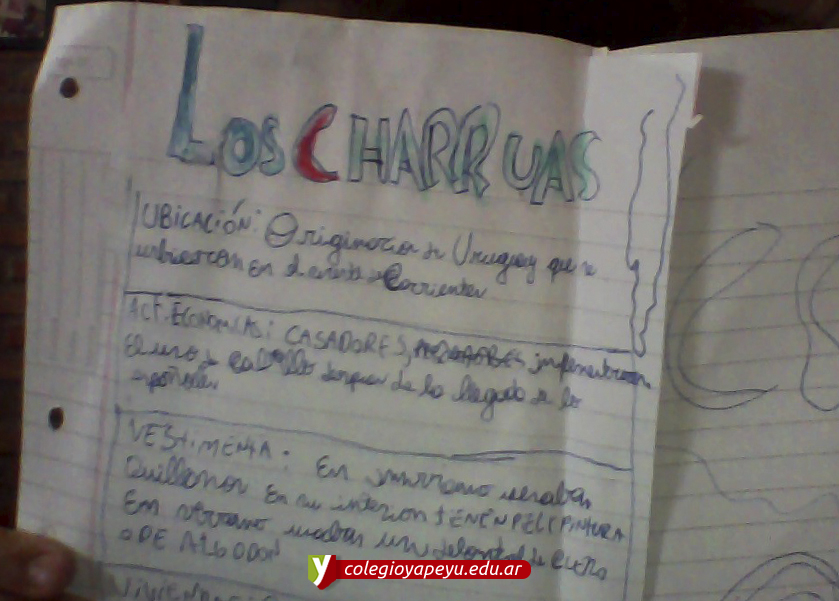 LOS CHARRUAS
UBICACIÓN: Originaria de Uruguay que se
ubicaron en el de Corrientes
ACT. ECONOMICAS: CASADORES, implementaron
el uso de caballo despues de la llegada de los
españoles
VESTIMENTA: En invierno usaban
Quillanos En su interior TENEN PELI PINTURA
En verano usaban un delantal de cuero
o DE ALGODON
colegioyapeyu.edu.ar